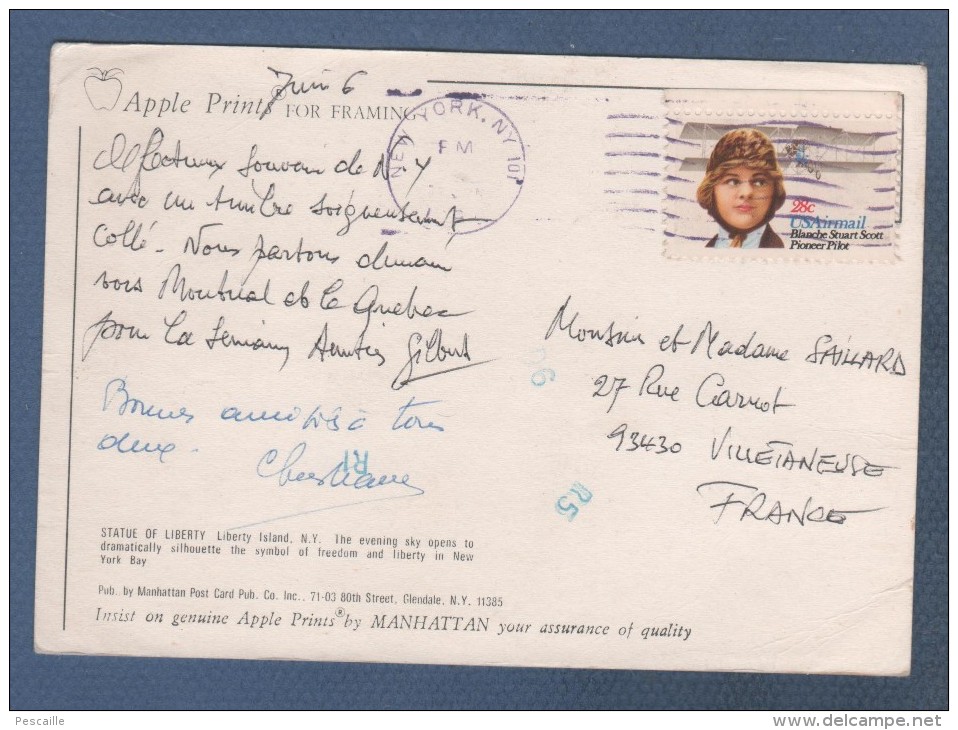 Juin 6
Apple Prints® FOR FRAMING
NEW YORK, NY 101
PM
28c
USAirmail
Blanche Stuart Scott
Pioneer Pilot
Affectueux souvenir de N-Y
avec un timbre soigneusement
collé - Nous partons demain
vers Montreal et le Quebec
pour la semaine Amitiés Gilbert
Bonnes amitiés à tous
deux - Christiane
Monsieur et Madame SAILLARD
27 Rue Carnot
93430 VILLETANEUSE
FRANCE
06
R1
R5
STATUE OF LIBERTY Liberty Island, N.Y. The evening sky opens to
dramatically silhouette the symbol of freedom and liberty in New
York Bay
Pub. by Manhattan Post Card Pub. Co. Inc., 71-03 80th Street, Glendale, N.Y. 11385
Insist on genuine Apple Prints® by MANHATTAN your assurance of quality
Pescaille
www.delcampe.net